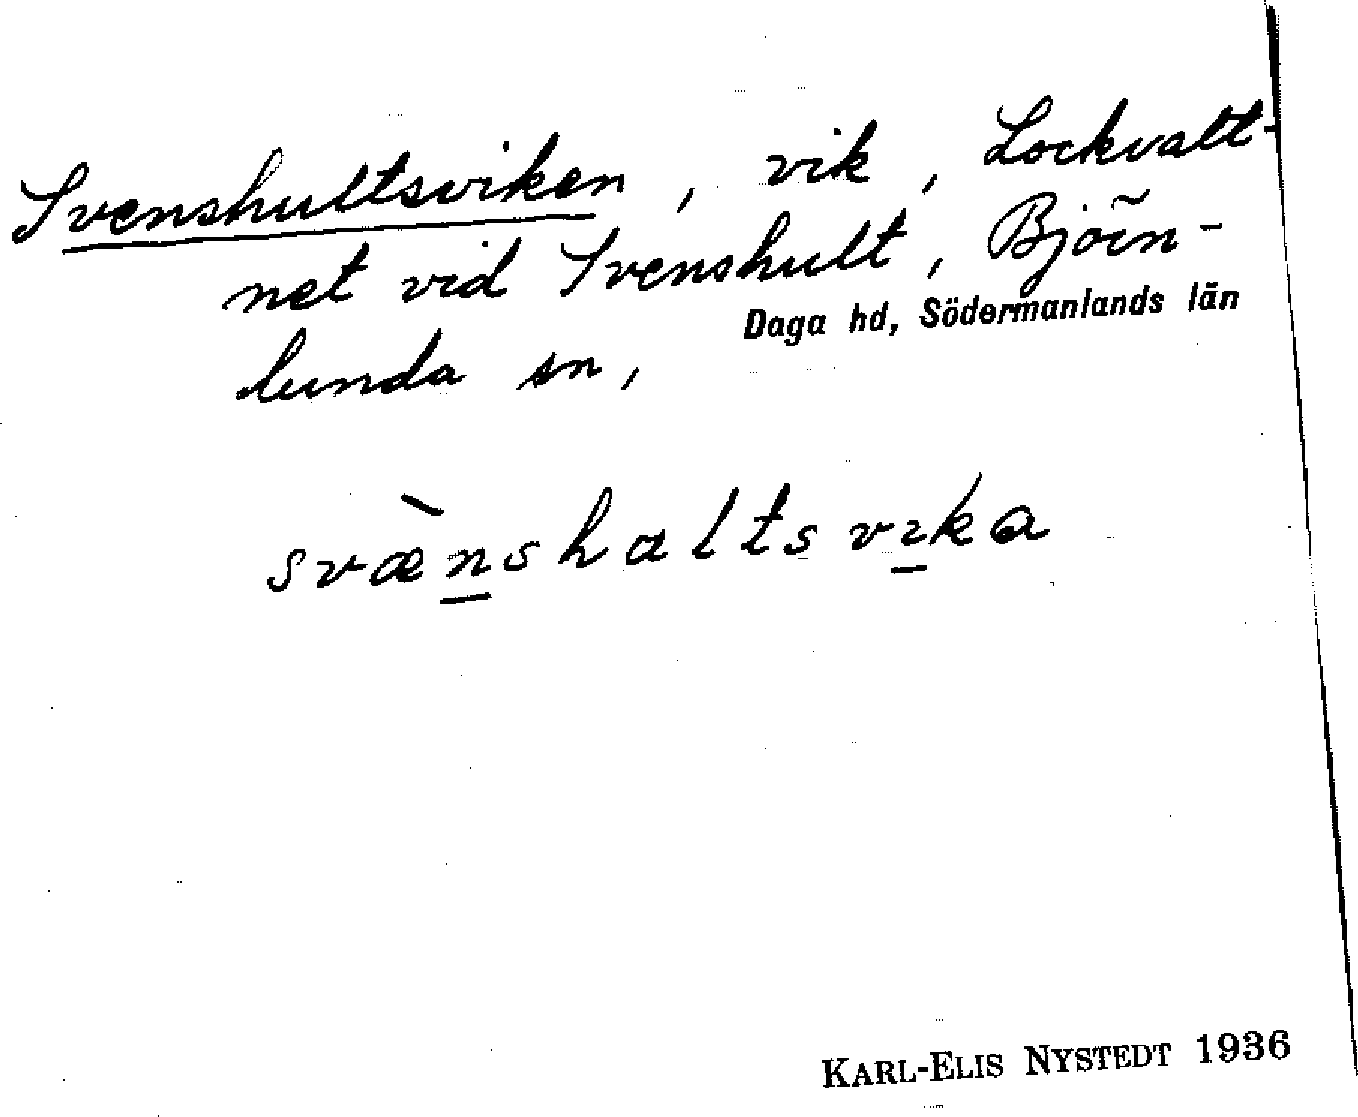 Svenshultsviken, vik, Lockvatt-
net vid Svenshult, Björn-
lunda sn, Daga hd, Södermanlands län
svæ̀n̲shaltsvı̲ka
KARL-ELIS NYSTEDT 1936